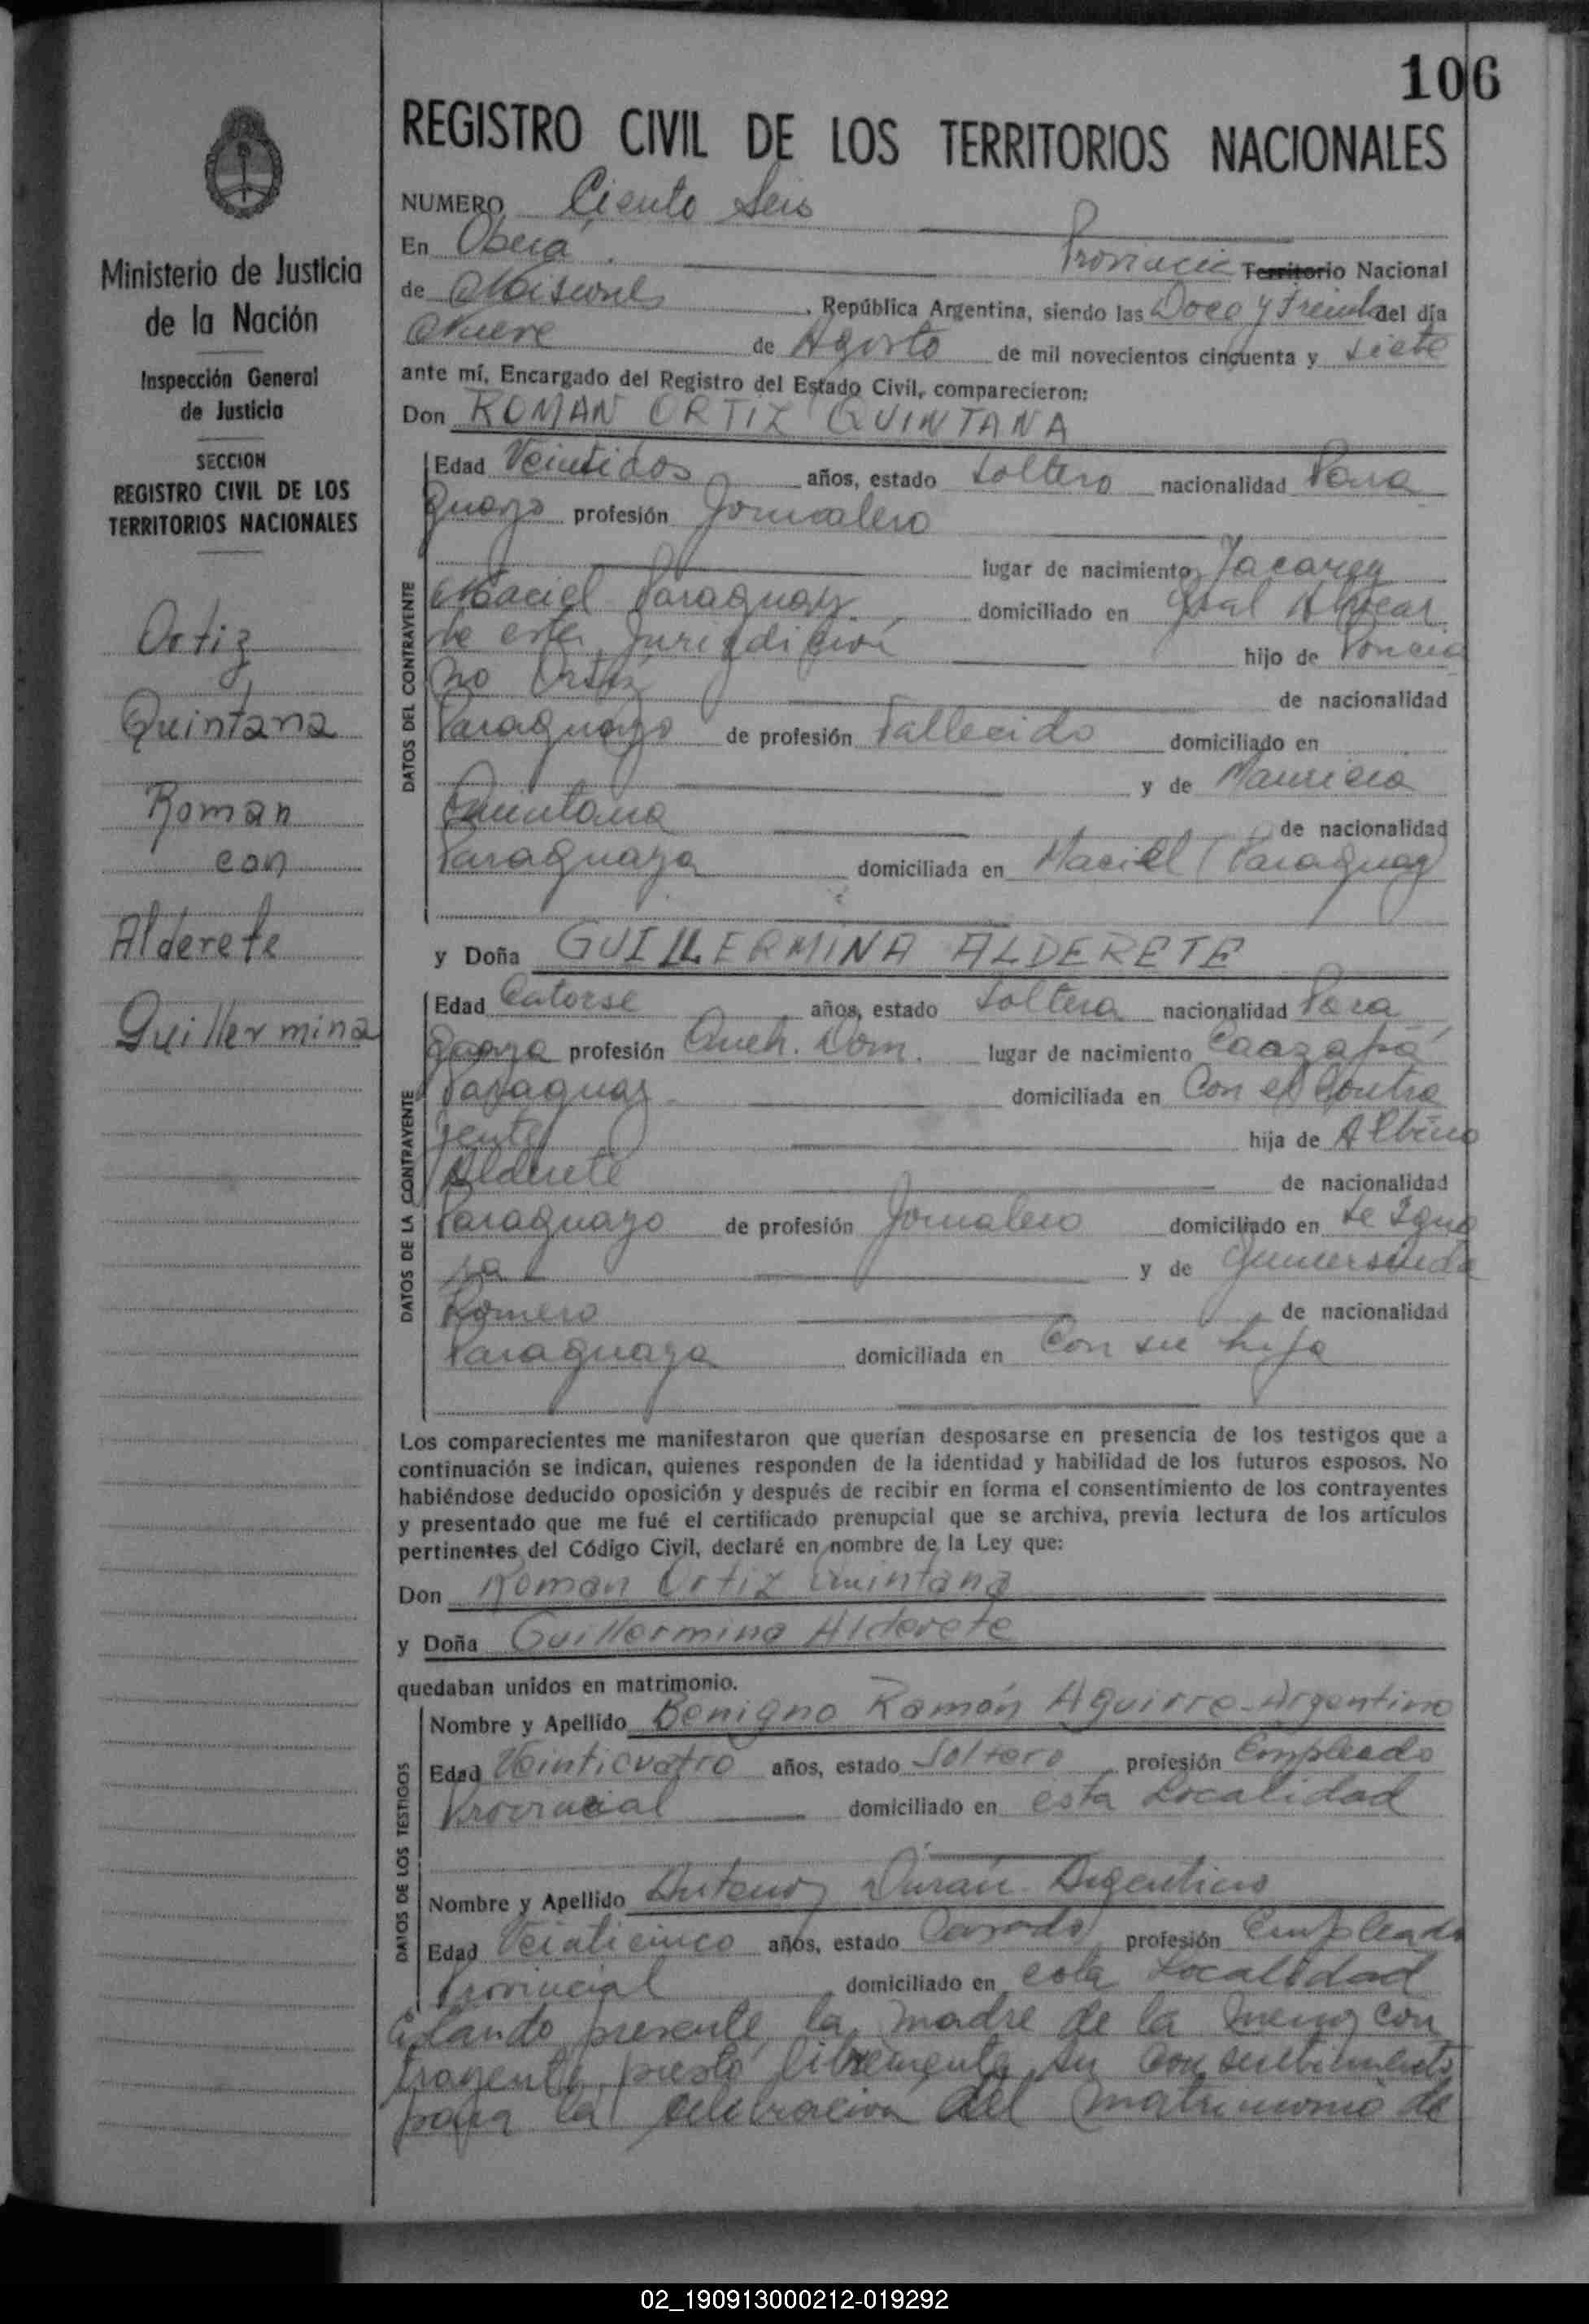 106
REGISTRO CIVIL DE LOS TERRITORIOS NACIONALES
Ministerio de Justicia
de la Nación
Inspección General
de Justicia
SECCION
REGISTRO CIVIL DE LOS
TERRITORIOS NACIONALES
Ortiz
Quintana
Roman
con
Alderete
Guillermina
NUMERO Ciento Seis
En Oberá Provincia Territorio Nacional
de Misiones, República Argentina, siendo las Doce y Treinta del día
Nueve de Agosto de mil novecientos cincuenta y siete
ante mí, Encargado del Registro del Estado Civil, comparecieron:
Don ROMAN ORTIZ QUINTANA
DATOS DEL CONTRAYENTE
Edad Veintidos años, estado soltero nacionalidad Para
guayo profesión Jornalero
lugar de nacimiento Yacarey
Maciel Paraguay domiciliado en Gral Alvear
de esta Jurisdición hijo de Poncia
no Ortiz de nacionalidad
Paraguayo de profesión Fallecido domiciliado en
y de Mauricia
Quintana de nacionalidad
Paraguaya domiciliada en Maciel (Paraguay)
y Doña GUILLERMINA ALDERETE
DATOS DE LA CONTRAYENTE
Edad Catorse años, estado soltera nacionalidad Para
guaya profesión Queh. Dom. lugar de nacimiento Caazapá
Paraguay domiciliada en Con el Contra
yente hija de Albino
Alderete de nacionalidad
Paraguayo de profesión Jornalero domiciliado en se Igno
ra y de Gumersinda
Romero de nacionalidad
Paraguaya domiciliada en Con su hija
Los comparecientes me manifestaron que querían desposarse en presencia de los testigos que a
continuación se indican, quienes responden de la identidad y habilidad de los futuros esposos. No
habiéndose deducido oposición y después de recibir en forma el consentimiento de los contrayentes
y presentado que me fué el certificado prenupcial que se archiva, previa lectura de los artículos
pertinentes del Código Civil, declaré en nombre de la Ley que:
Don Roman Ortiz Quintana
y Doña Guillermina Alderete
quedaban unidos en matrimonio.
DATOS DE LOS TESTIGOS
Nombre y Apellido Benigno Ramón Aguirre-Argentino
Edad Veinticuatro años, estado Soltero profesión Empleado
Provincial domiciliado en esta Localidad
Nombre y Apellido Antenor Durán Argentino
Edad Veinticinco años, estado Casado profesión Empleado
Provincial domiciliado en esta Localidad
Estando presente la madre de la menor con
trayente presto libremente su consentimiento
para la celebracion del matrimonio de
02_190913000212-019292